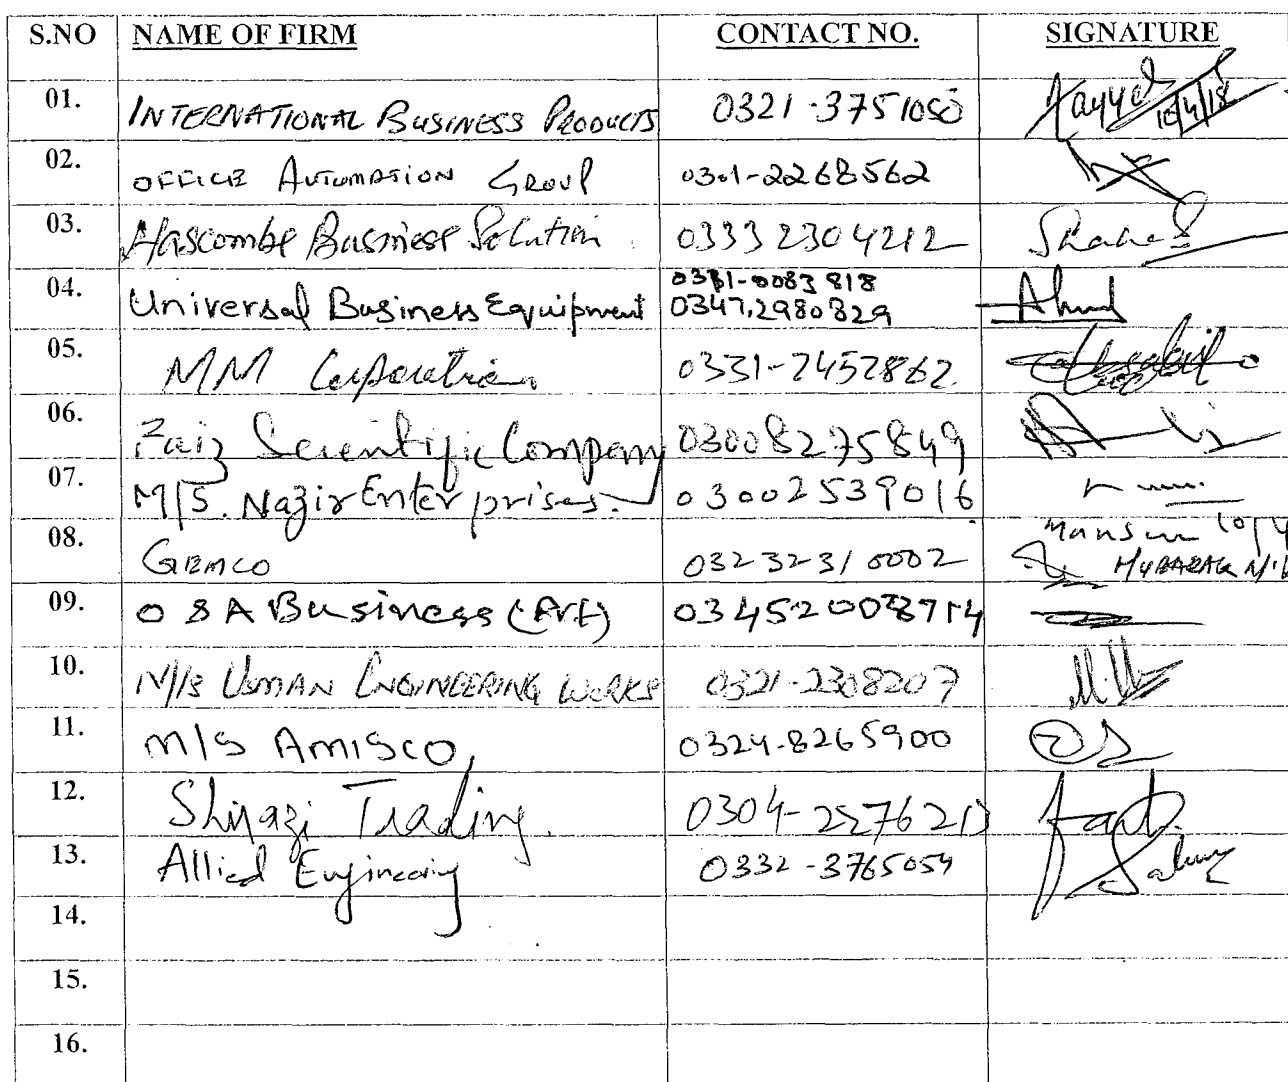 S.NO NAME OF FIRM CONTACT NO. SIGNATURE
01. INTERNATIONAL BUSINESS PRODUCTS 0321-3751050 10/4/18
02. OFFICE AUTOMATION GROUP 0301-2268562
03. Hascombe Business Solution 03332304212
04. Universal Business Equipment 0331-0083818
0347.2980829 Ahmad
05. MM Corporation 0331-2452862
06. Faiz Scientific Company 03008275849
07. M/S. Nazir Enterprises. 03002539016
08. GEMCO 03232310002 Mansur 10/4
MUBARAK
09. O & A Business (Pvt) 03452008714
10. M/S USMAN ENGINEERING WORKS 0321-2308207
11. M/S AMISCO, 0324-8265900
12. Shirazi Trading. 0304-2276213
13. Allied Engineering 0332-3765054
14.
15.
16.